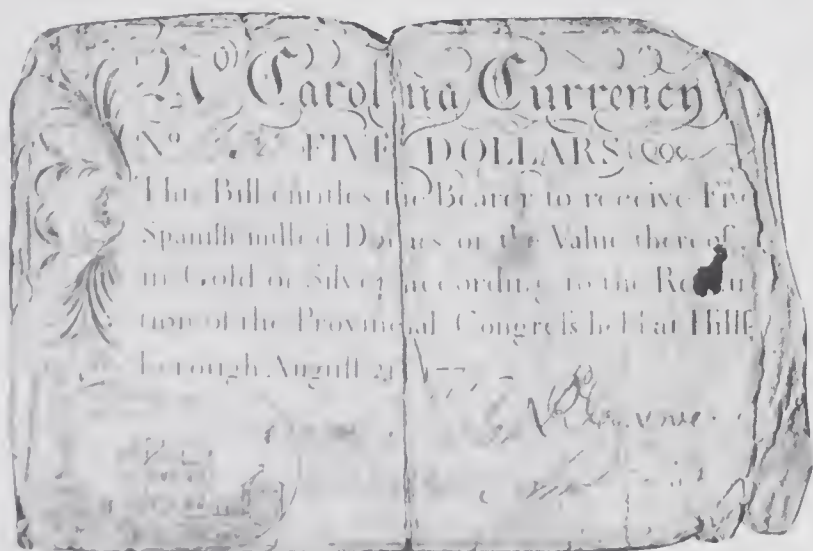 No Carolina Currency
No FIVE DOLLARS
This Bill entitles the Bearer to receive Five
Spanish milled Dollars or the Value thereof
in Gold or Silver according to the Resolu
tion of the Provincial Congress held at Hillſ
borough Auguſt 21